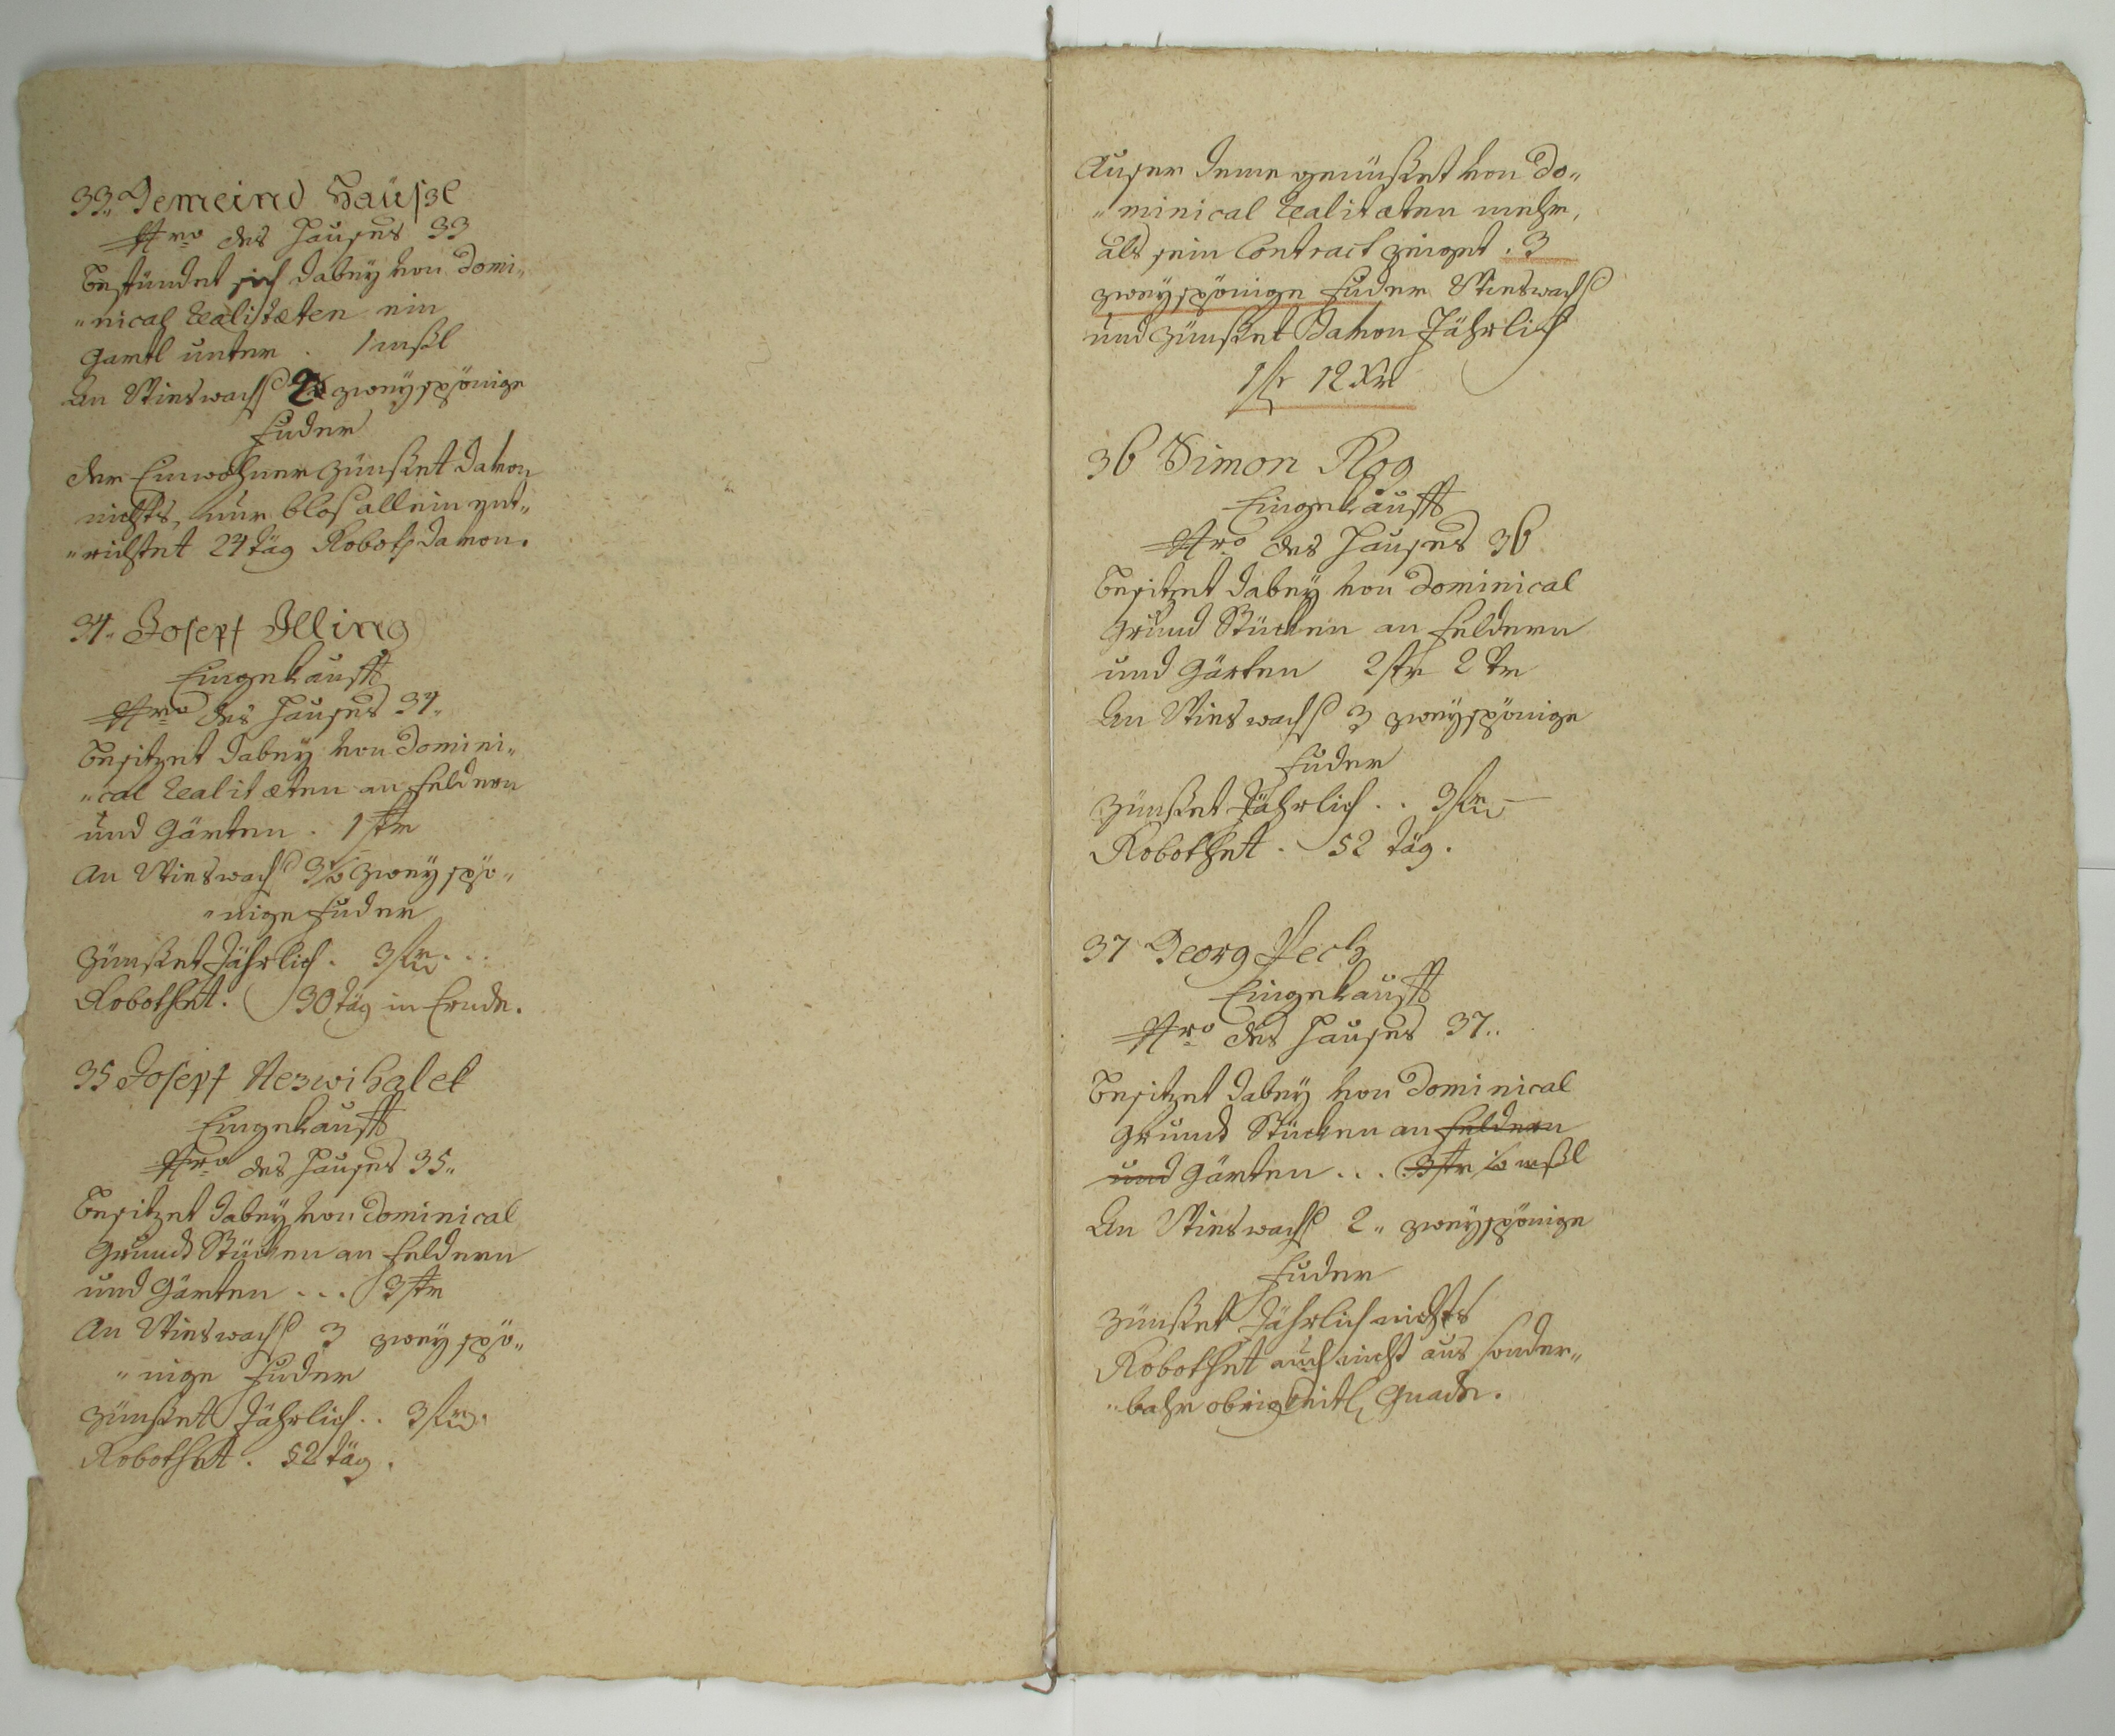 33. Gemeind Haüßl
Nro des Hauses 33
Befündet sich dabey von Domi„
„nical Realitæten ein
Gartl unter . 1 mßl
An Wieswachs 2 zweyspönige
Fuder
Der Einwohner Zünßet davon
nichts, nur blos allein ent„
„richtet 24 täg Roboth davon.
34. Joseph Illing
Eingekaufft
Nro des Hauses 34.
Besitzet dabey von Domini„
„cal Realitæten an Feldern
und Gärten . 1 str
An Wieswachs 3 zweyspö„
„nige Fuder
Zünßet Jährlich . 3
Robothet . 30 täg in Ernde.
35 Joseph Nezwihalek
Eingekaufft
Nro des Hauses 35..
Besitzet dabey von Dominical
Grund Stücken an Feldern
und Gärten ... 3 str
An Wieswachs 3 zweyspö„
„nige Fuder
Zünßet Jährlich .. 3
Robothet . 52 täg .
Auser deme genüßet von Do„
„minical Realitæten mehr,
als sein Contract zeiget . 3
zweyspönige Fuder Wieswachs
und Zünßet davon Jährlich
1 fr 12 Xr
36 Simon Rog
Eingekaufft
Nro des Hauses 36
Besitzet dabey von Dominical
Grund Stücken an Feldern
und Gärten 2 str 2
An Wieswachs 3 zweyspönige
Fuder
Zünßet Jährlich .. 3
Robothet . 52 täg .
37 Georg Pech
Eingekaufft
Nro des Hauses 37..
Besitzet dabey von Dominical
Grund Stücken an Feldern
und Gärten ... 3 str mßl
An Wieswachs 2„ zweyspönige
Fuder
Zünßet Jährlich nichts
Robothet auch nicht aus sonder„
„bahr obrigkeitl Gnade.